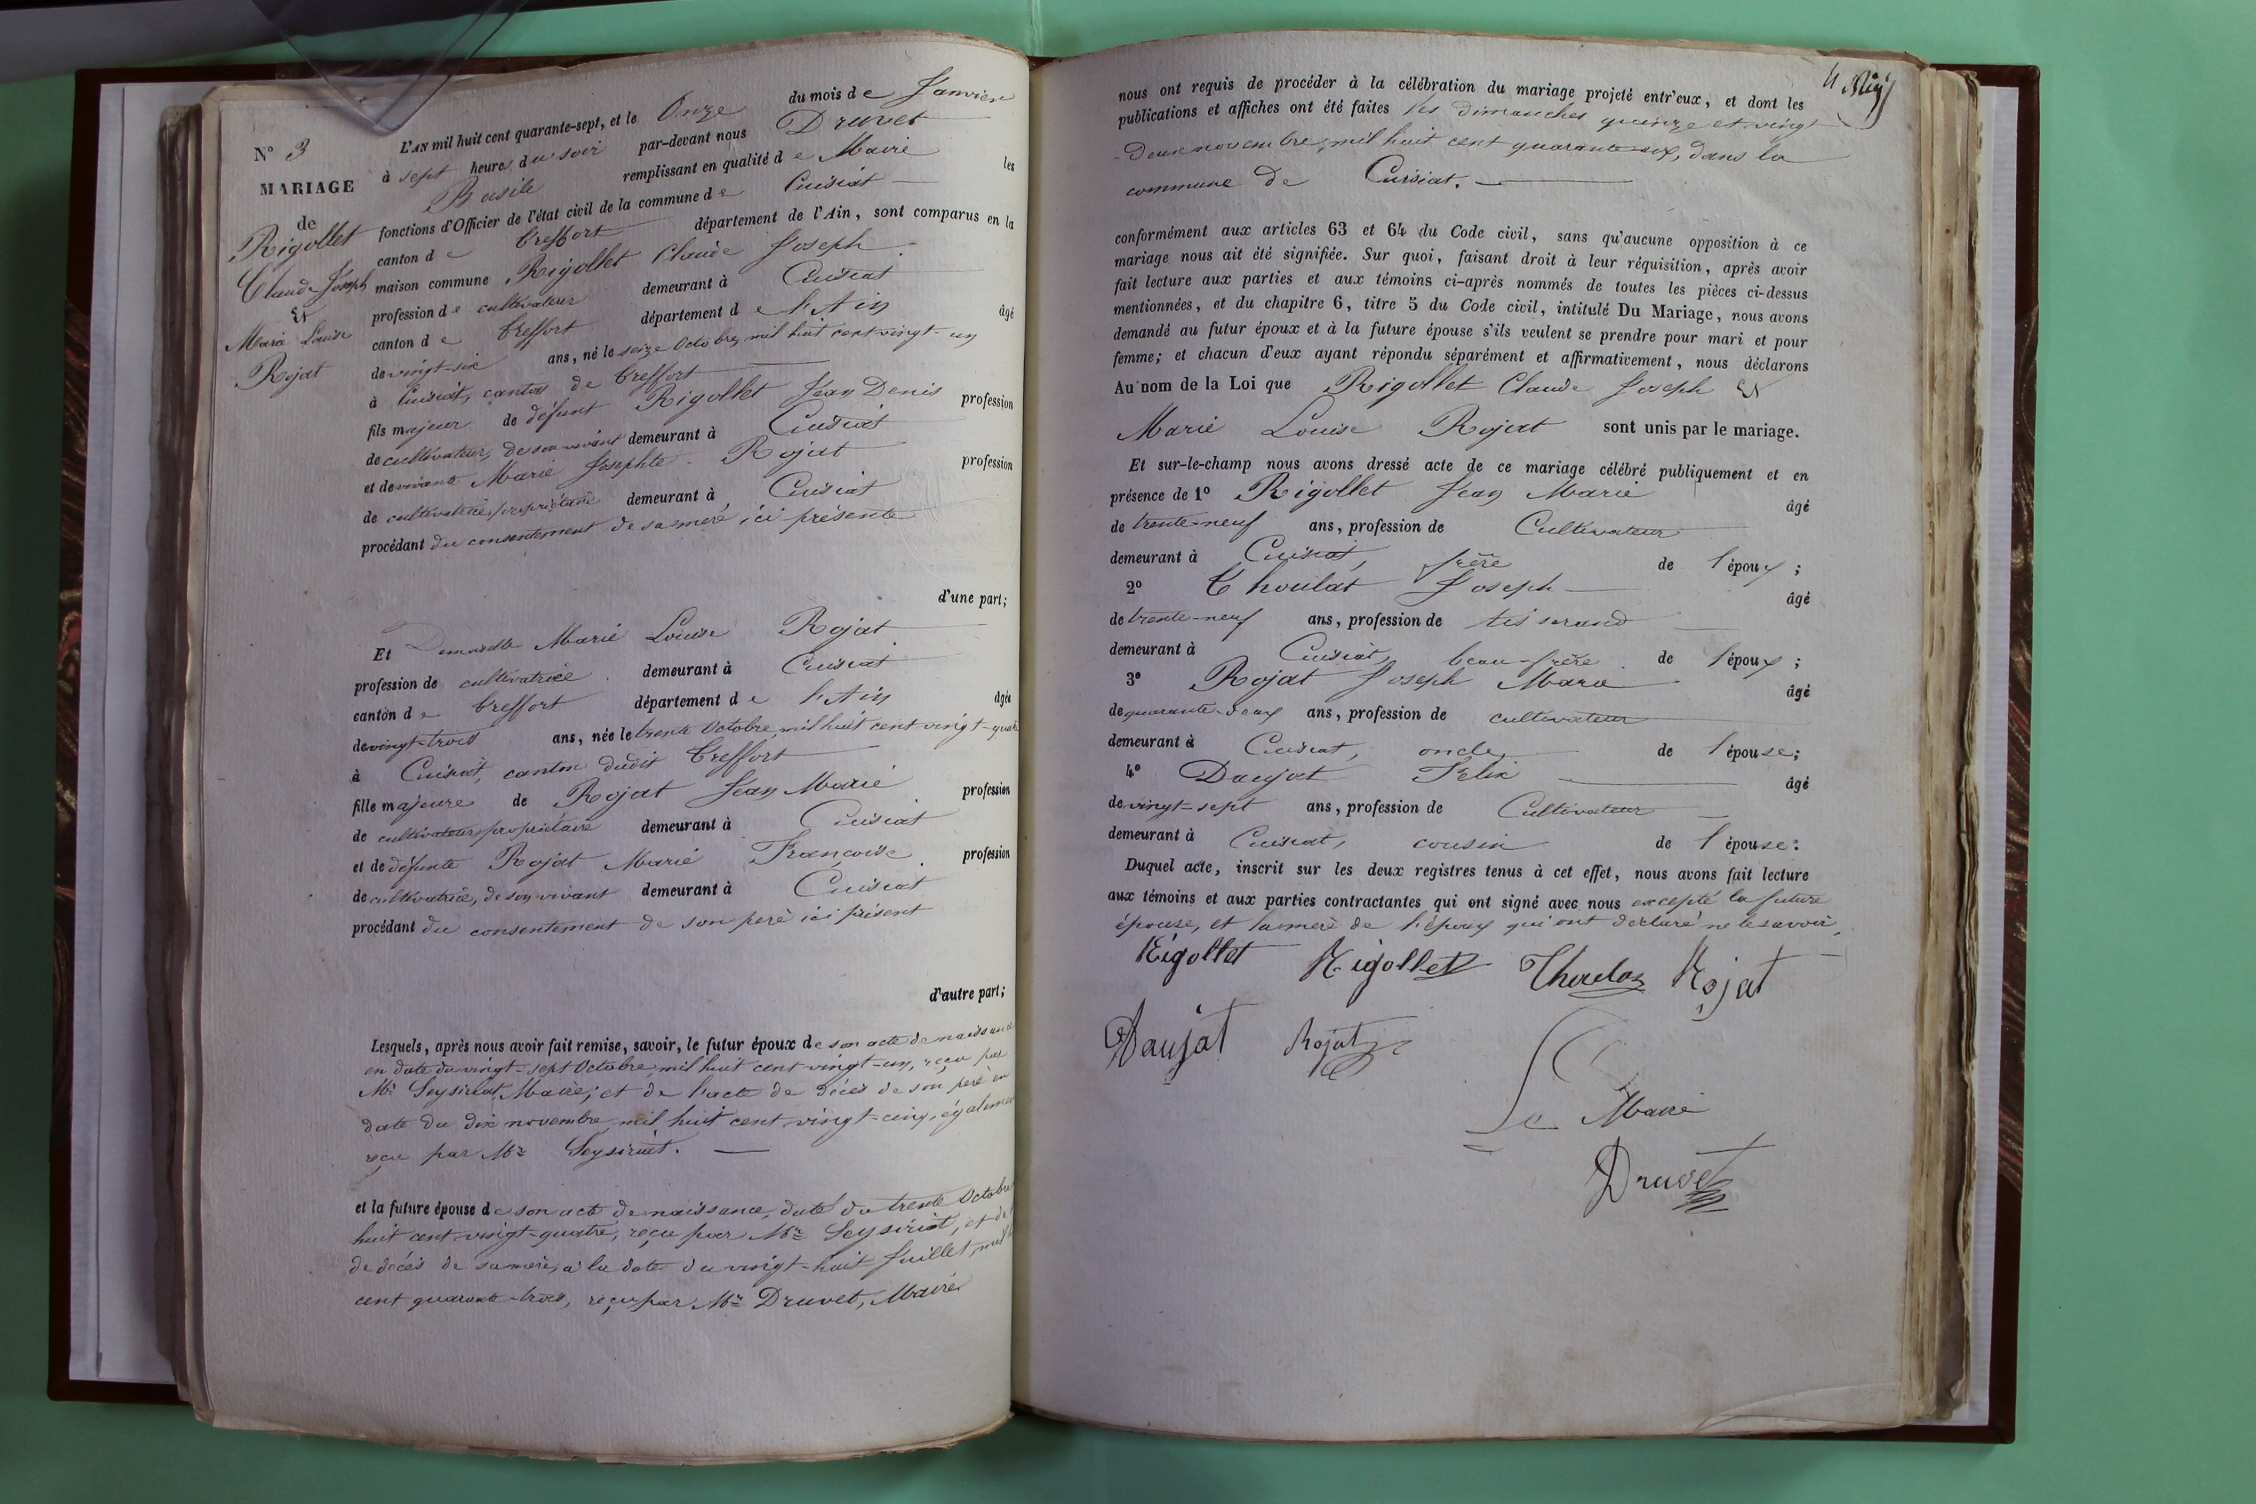 N° 3
MARIAGE
de
Rigollet
Claude Joseph
et
Marie Louise
Rojat
L'AN mil huit cent quarante-sept, et le Onze du mois de Janvier
à sept heures du soir par-devant nous Druvet
Basile remplissant en qualité de Maire les
fonctions d'Officier de l'état civil de la commune de Cuisiat
canton de Treffort département de l'Ain, sont comparus en la
maison commune Rigollet Claude Joseph
profession de cultivateur demeurant à Cuisiat
canton de Treffort département de l'Ain âgé
de vingt-six ans, né le seize Octobre mil huit cent vingt-un
à Cuisiat, canton de Treffort
fils majeur de défunt Rigollet Jean Denis profession
de cultivateur, de son vivant demeurant à Cuisiat
et de vivante Marie Josephte Rojat profession
de cultivatrice, propriétaire demeurant à Cuisiat
procédant du consentement de sa mère, ici présente
d'une part;
Et Demoiselle Marie Louise Rojat
profession de cultivatrice demeurant à Cuisiat
canton de Treffort département de l'Ain âgée
de vingt-trois ans, née le trente Octobre mil huit cent vingt-quatre
à Cuisiat, canton dudit Treffort
fille majeure de Rojat Jean Marie profession
de cultivateur, propriétaire demeurant à Cuisiat
et de défunte Rojat Marie Françoise profession
de cultivatrice, de son vivant demeurant à Cuisiat
procédant du consentement de son père ici présent
d'autre part;
Lesquels, après nous avoir fait remise, savoir, le futur époux de son acte de naissance
en date du vingt-sept Octobre mil huit cent vingt-un, reçu par
Mr Seysiriat, Maire; et de l'acte de décès de son père en
date du dix novembre mil huit cent vingt-cinq, également
reçu par Mr Seysiriat.
et la future épouse de son acte de naissance, daté du trente Octobre
huit cent vingt-quatre, reçu par Mr Seysiriat, et de
de décès de sa mère, à la date du vingt-huit Juillet, mil
cent quarante-trois, reçu par Mr Druvet, Maire
nous ont requis de procéder à la célébration du mariage projeté entr'eux, et dont les
publications et affiches ont été faites les dimanches quinze et vingt
-Deux novembre, mil huit cent quarante-six, dans la
commune de Cuisiat.
conformément aux articles 63 et 64 du Code civil, sans qu'aucune opposition à ce
mariage nous ait été signifiée. Sur quoi, faisant droit à leur réquisition, après avoir
fait lecture aux parties et aux témoins ci-après nommés de toutes les pièces ci-dessus
mentionnées, et du chapitre 6, titre 5 du Code civil, intitulé Du Mariage, nous avons
demandé au futur époux et à la future épouse s'ils veulent se prendre pour mari et pour
femme; et chacun d'eux ayant répondu séparément et affirmativement, nous déclarons
Au nom de la Loi que Rigollet Claude Joseph et
Marie Louise Rojat sont unis par le mariage.
Et sur-le-champ nous avons dressé acte de ce mariage célébré publiquement et en
présence de 1° Rigollet Jean Marie âgé
de trente-neuf ans, profession de Cultivateur
demeurant à Cuisiat, frère de l'époux;
2° Thoulat Joseph âgé
de trente-neuf ans, profession de tisserand
demeurant à Cuisiat, beau-frère de l'époux;
3° Rojat Joseph Marie âgé
de quarante-deux ans, profession de cultivateur
demeurant à Cuisiat, oncle de l'épouse;
4° Daujat Felix âgé
de vingt-sept ans, profession de Cultivateur
demeurant à Cuisiat, cousin de l'épouse:
Duquel acte, inscrit sur les deux registres tenus à cet effet, nous avons fait lecture
aux témoins et aux parties contractantes qui ont signé avec nous excepté la future
épouse, et la mère de l'époux qui ont déclaré ne le savoir
Rigollet Rigollet Rojat
Daujat Rojat
Le Maire
Druvet